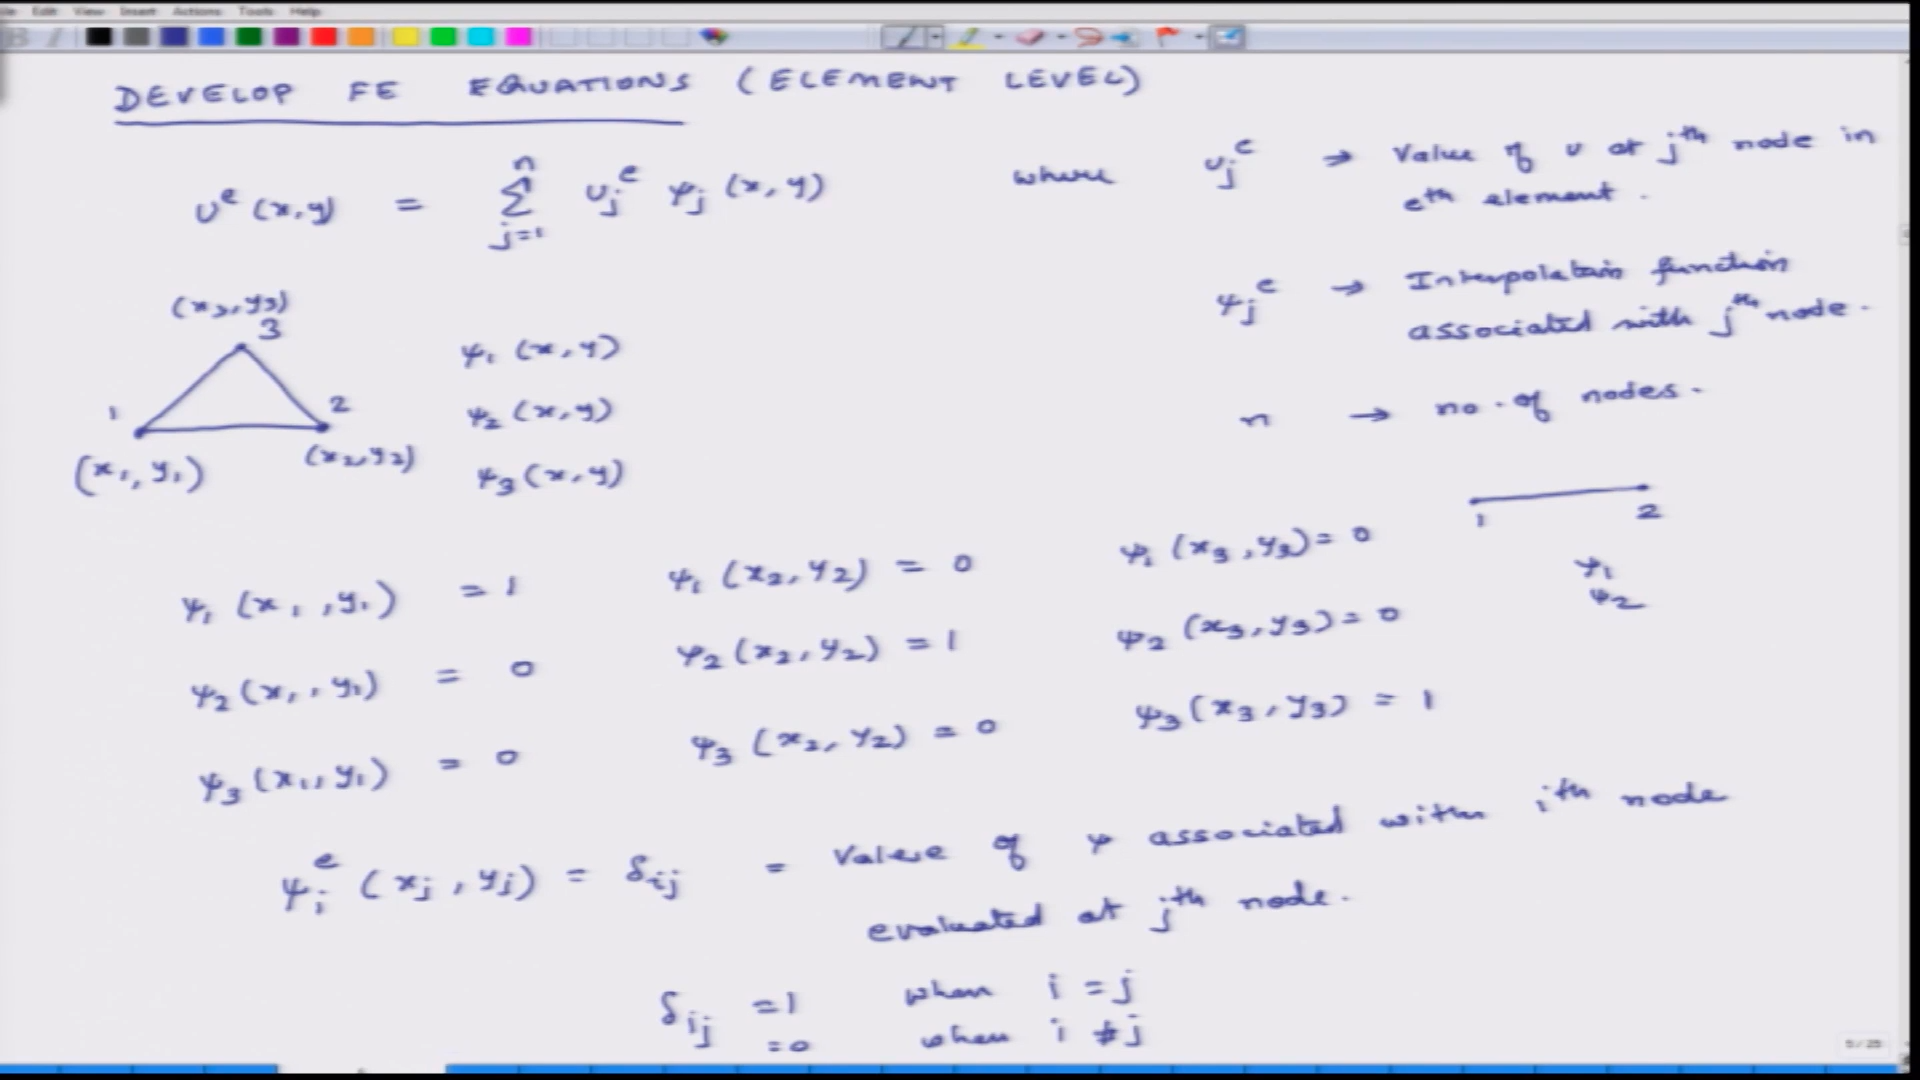 Edit View Insert Actions Tools Help
DEVELOP FE EQUATIONS (ELEMENT LEVEL)
u^e (x,y) = Σ_{j=1}^{n} u_j^e ψ_j (x,y)
where u_j^e → Value of u at j^th node in
e^th element.
ψ_j^e → Interpolation function
associated with j^th node.
n → no. of nodes.
(x3,y3)
3
1
2
(x1,y1)
(x2,y2)
ψ1 (x,y)
ψ2 (x,y)
ψ3 (x,y)
1 2
ψ1
ψ2
ψ1 (x1,y1) = 1 ψ1 (x2,y2) = 0 ψ1 (x3,y3) = 0
ψ2 (x1,y1) = 0 ψ2 (x2,y2) = 1 ψ2 (x3,y3) = 0
ψ3 (x1,y1) = 0 ψ3 (x2,y2) = 0 ψ3 (x3,y3) = 1
ψ_i^e (xj,yj) = δij = Value of ψ associated with i^th node
evaluated at j^th node.
δij =1 when i = j
=0 when i ≠ j
5/25